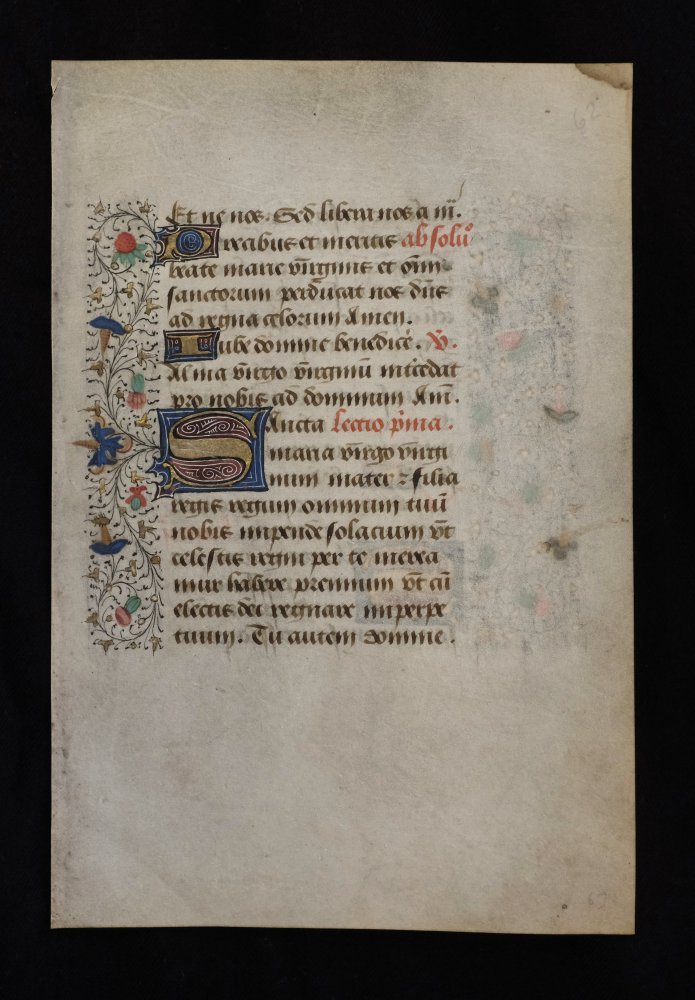 62
Et ne nos. Sed libera nos a m̄.
Precibus et meritis absoluᵒ
beate marie v̄irginis et om̄i
sanctorum perducat nos dn̄s
ad regna celorum Amen.
Iube domne benedicē. V̄.
Alma v̄irgo v̄irginū int̄cedat
pro nobis ad dominum Am̄.
Sancta lectio p̄ma.
maria v̄irgo v̄irgi
num mater ⁊ filia
regis regum omnium tuū
nobis impende solacium v̄t
celestis regni per te merea
mur habere premium v̄t cū
electis dei regnare imperpe
tuum. Tu autem domine.